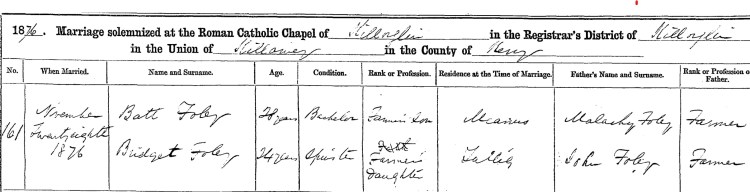 1876. Marriage solemnized at the Roman Catholic Chapel of Killorglin in the Registrar's District of Killorglin
in the Union of Killarney in the County of Kerry
No. When Married. Name and Surname. Age. Condition. Rank or Profession. Residence at the Time of Marriage. Father's Name and Surname. Rank or Profession of Father.
161 November Twentyeighth 1876 Batt Foley 28 years Bachelor Farmer's Son Meanus Malachy Foley Farmer
Bridget Foley 24 years Spinster Farmer's Daughter John Foley Farmer